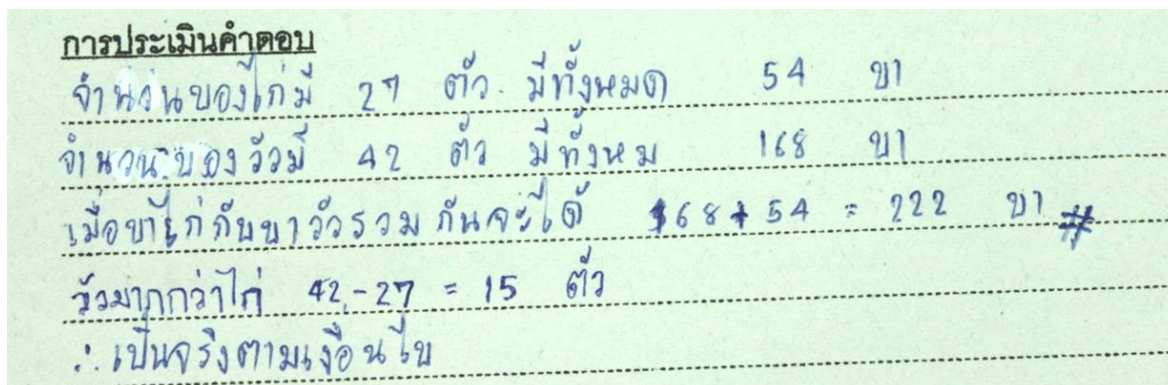 การประเมินคำตอบ
จำนวนของไก่มี 27 ตัว มีทั้งหมด 54 ขา
จำนวนของวัวมี 42 ตัว มีทั้งหม 168 ขา
เมื่อขาไก่กับขาวัวรวมกันจะได้ 168 + 54 = 222 ขา #
วัวมากกว่าไก่ 42 - 27 = 15 ตัว
∴ เป็นจริงตามเงื่อนไข